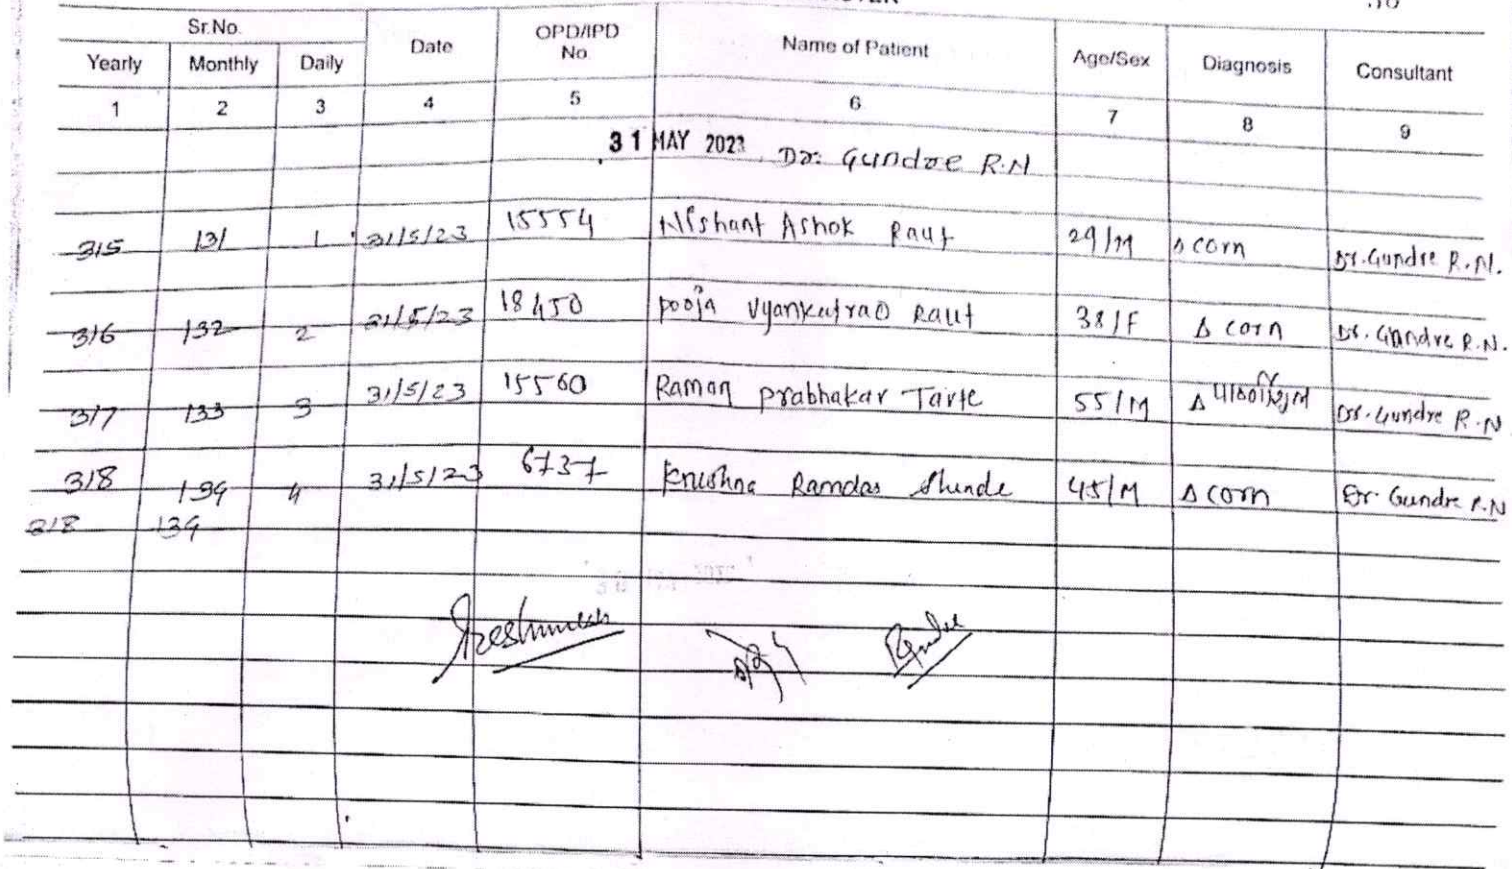 Sr.No. Date OPD/IPD No. Name of Patient Age/Sex Diagnosis Consultant
Yearly Monthly Daily
1 2 3 4 5 6 7 8 9
31 MAY 2023 Dr. Gundre R.N
315 131 1 31/5/23 15554 Nishant Ashok Raut 29/M Δ corn Dr. Gundre R.N.
316 132 2 31/5/23 18450 pooja Vyankatrao Raut 38/F Δ corn Dr. Gundre R.N.
317 133 3 31/5/23 15560 Raman Prabhakar Tarte 55/M Δ Dr. Gundre R.N
318 134 4 31/5/23 6737 Krushna Ramdas Shinde 45/M Δ corn Dr. Gundre R.N
318 134